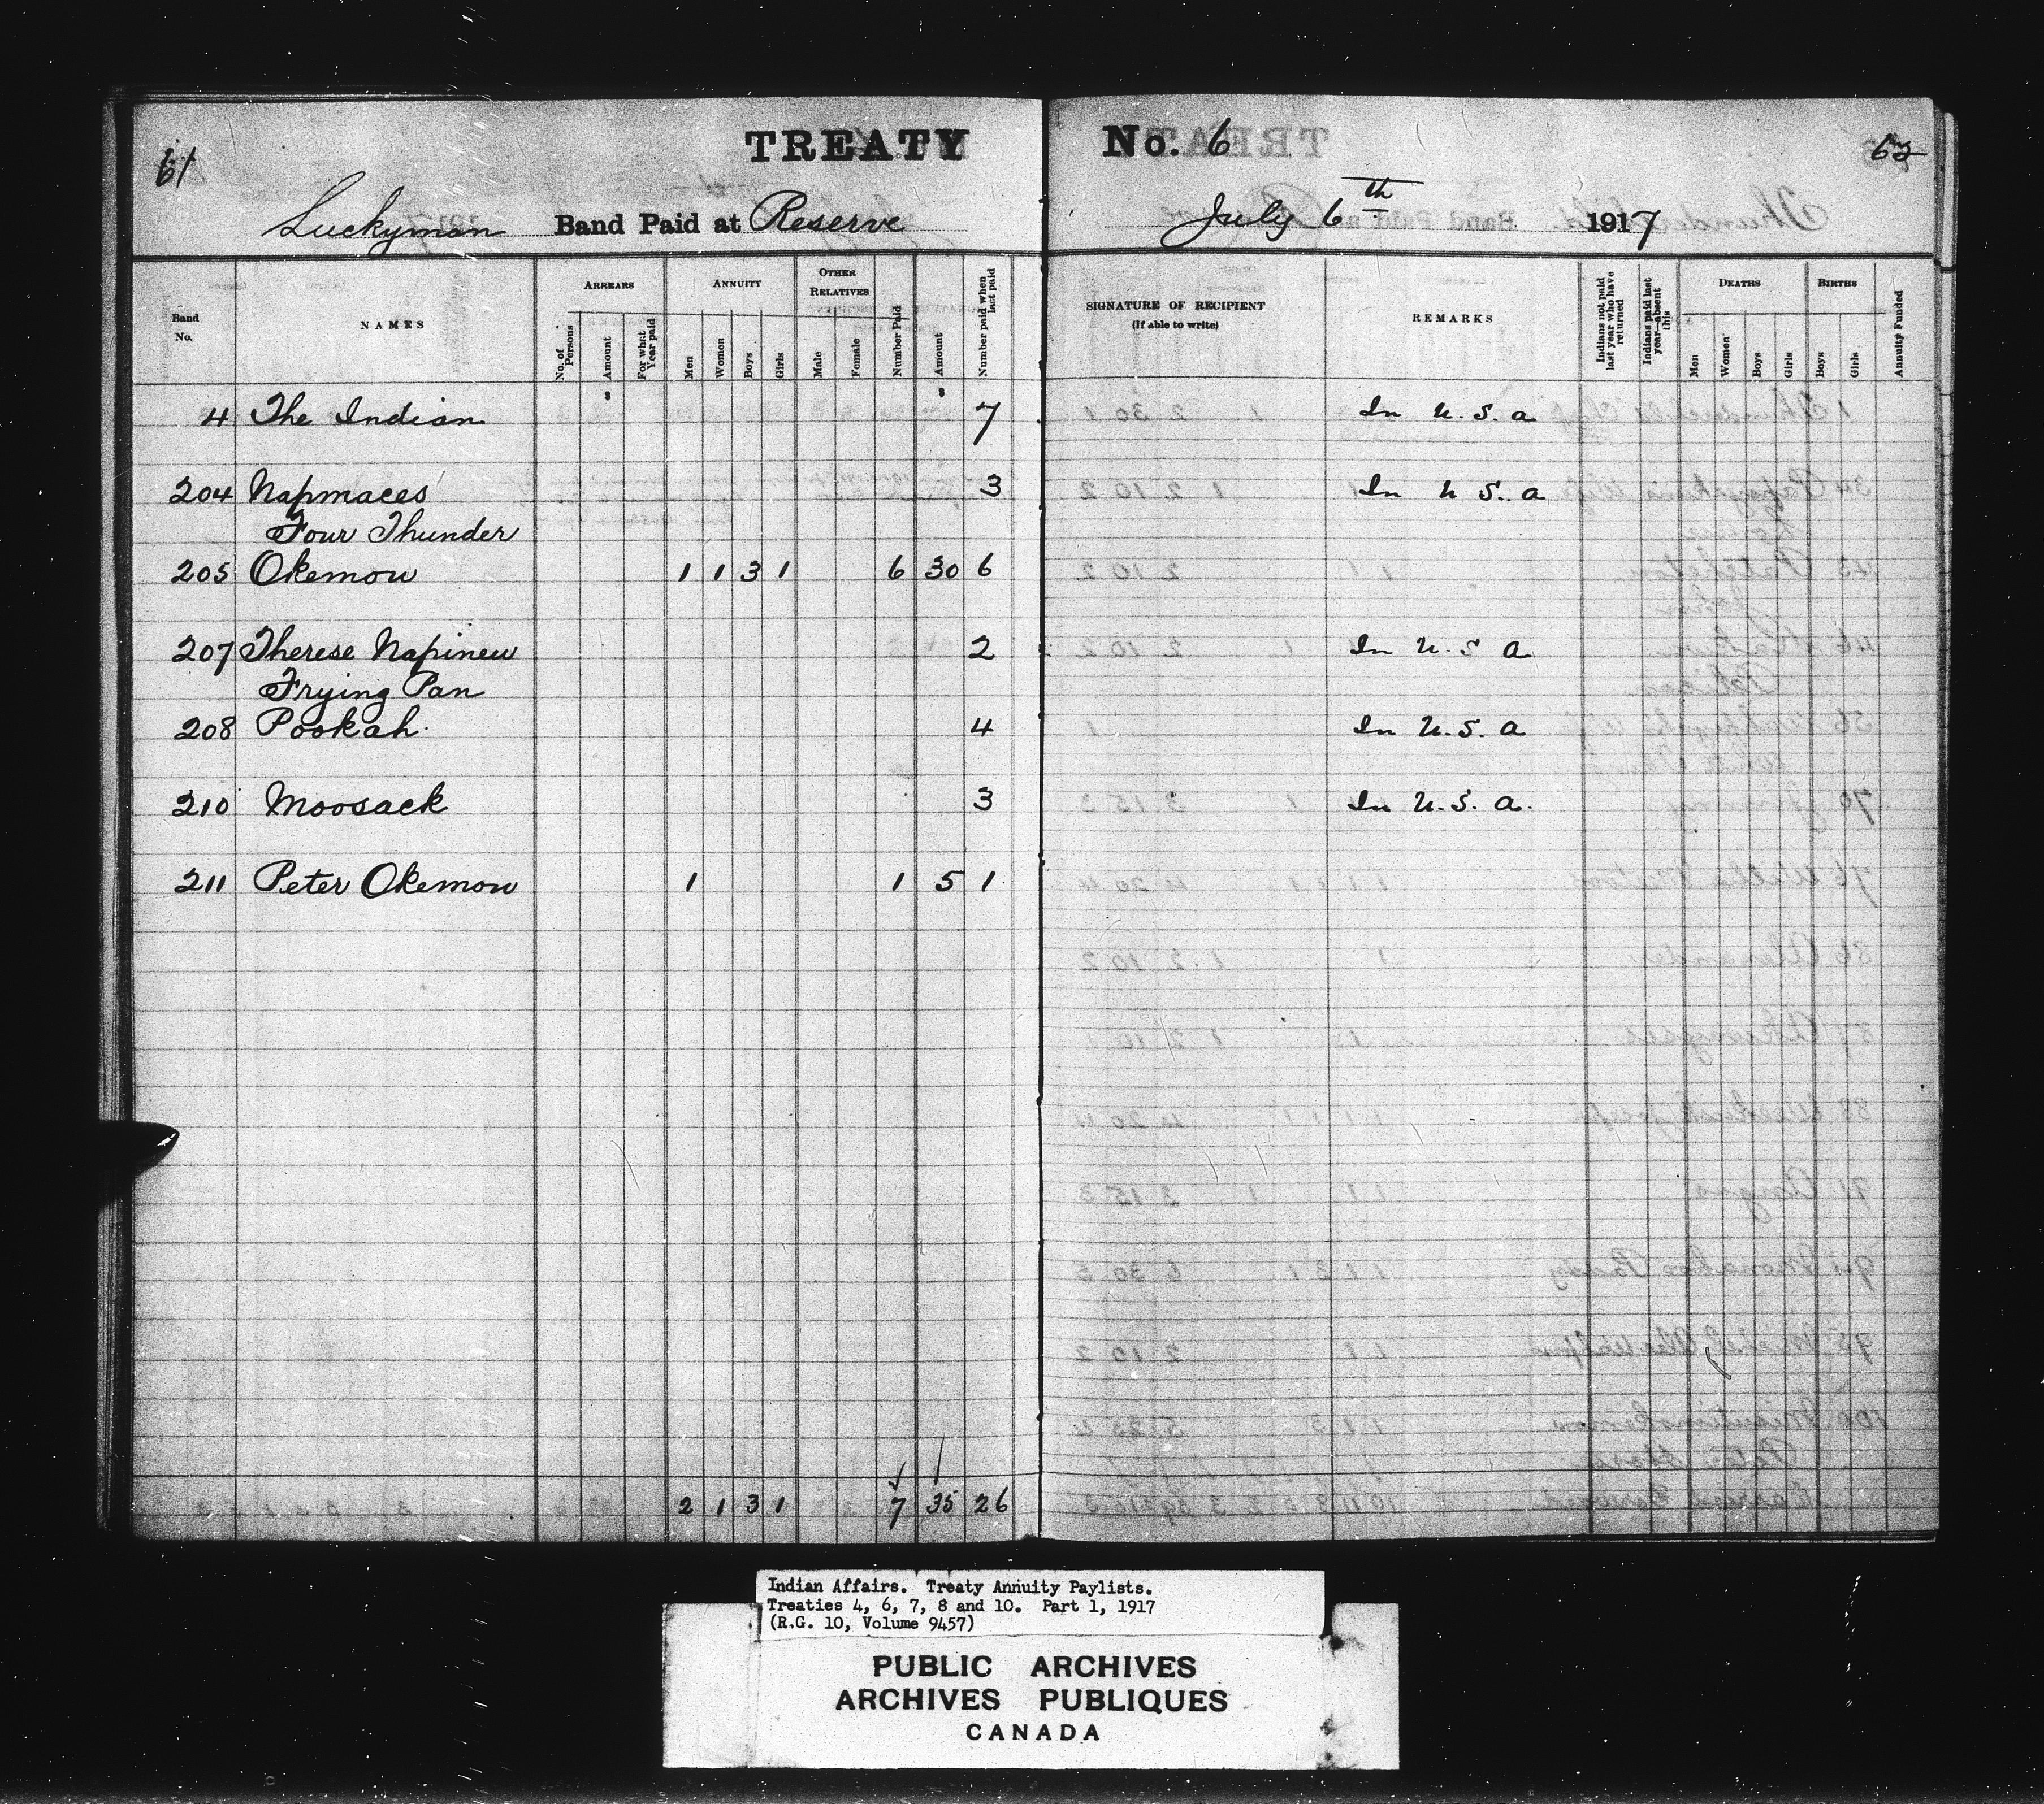 61
TREATY No. 6
62
Luckyman Band Paid at Reserve July 6th 1917
Band No.
NAMES
ARREARS
No. of Persons
Amount
For what Year paid
ANNUITY
Men
Women
Boys
Girls
OTHER RELATIVES
Male
Female
Number Paid
Amount
Number paid when last paid
SIGNATURE OF RECIPIENT
(If able to write)
REMARKS
Indians not paid last year who have returned
Indians paid last year—absent this
DEATHS
Men
Women
Boys
Girls
BIRTHS
Boys
Girls
Annuity Funded
4 The Indian 7 In U.S.a
204 Napmaces 3 In U S. a
Four Thunder
205 Okemow 1 1 3 1 6 30 6
207 Therese Napinew 2 In U.S a
Frying Pan
208 Pookah 4 In U.S. a
210 Moosack 3 In U.S. a.
211 Peter Okemow 1 1 5 1
2 1 3 1 7 35 26
Indian Affairs. Treaty Annuity Paylists.
Treaties 4, 6, 7, 8 and 10. Part 1, 1917
(R.G. 10, Volume 9457)
PUBLIC ARCHIVES
ARCHIVES PUBLIQUES
CANADA